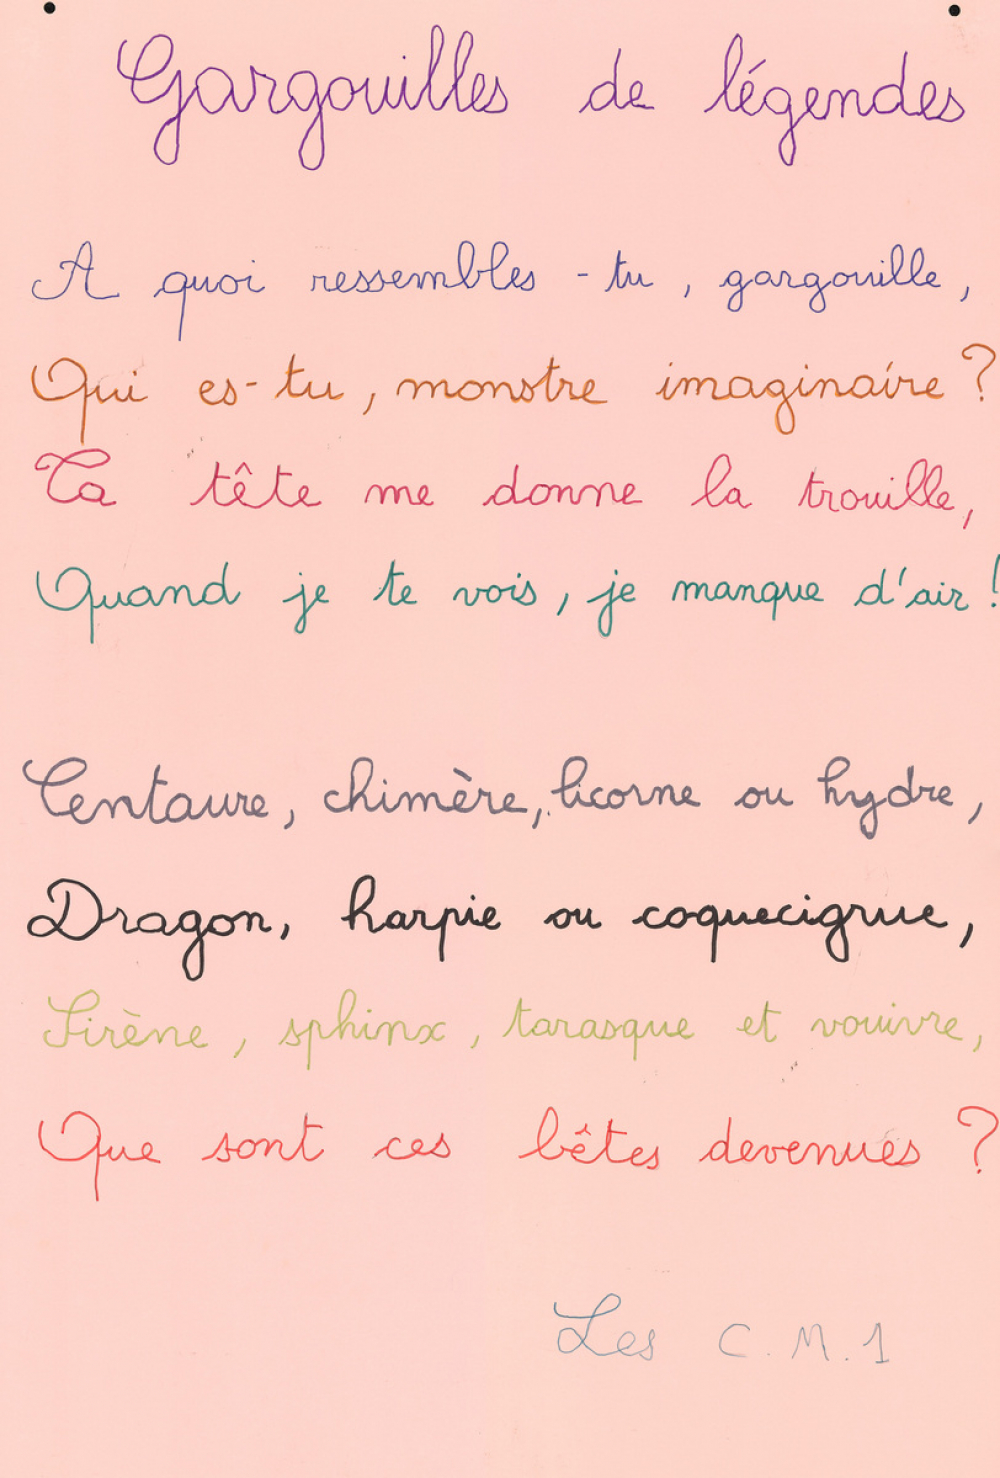 Gargouilles de légendes
A quoi ressembles-tu, gargouille,
Qui es-tu, monstre imaginaire ?
Ta tête me donne la trouille,
Quand je te vois, je manque d'air !
Centaure, chimère, licorne ou hydre,
Dragon, harpie ou coquecigrue,
Sirène, sphinx, tarasque et vouivre,
Que sont ces bêtes devenues ?
Les C.M.1